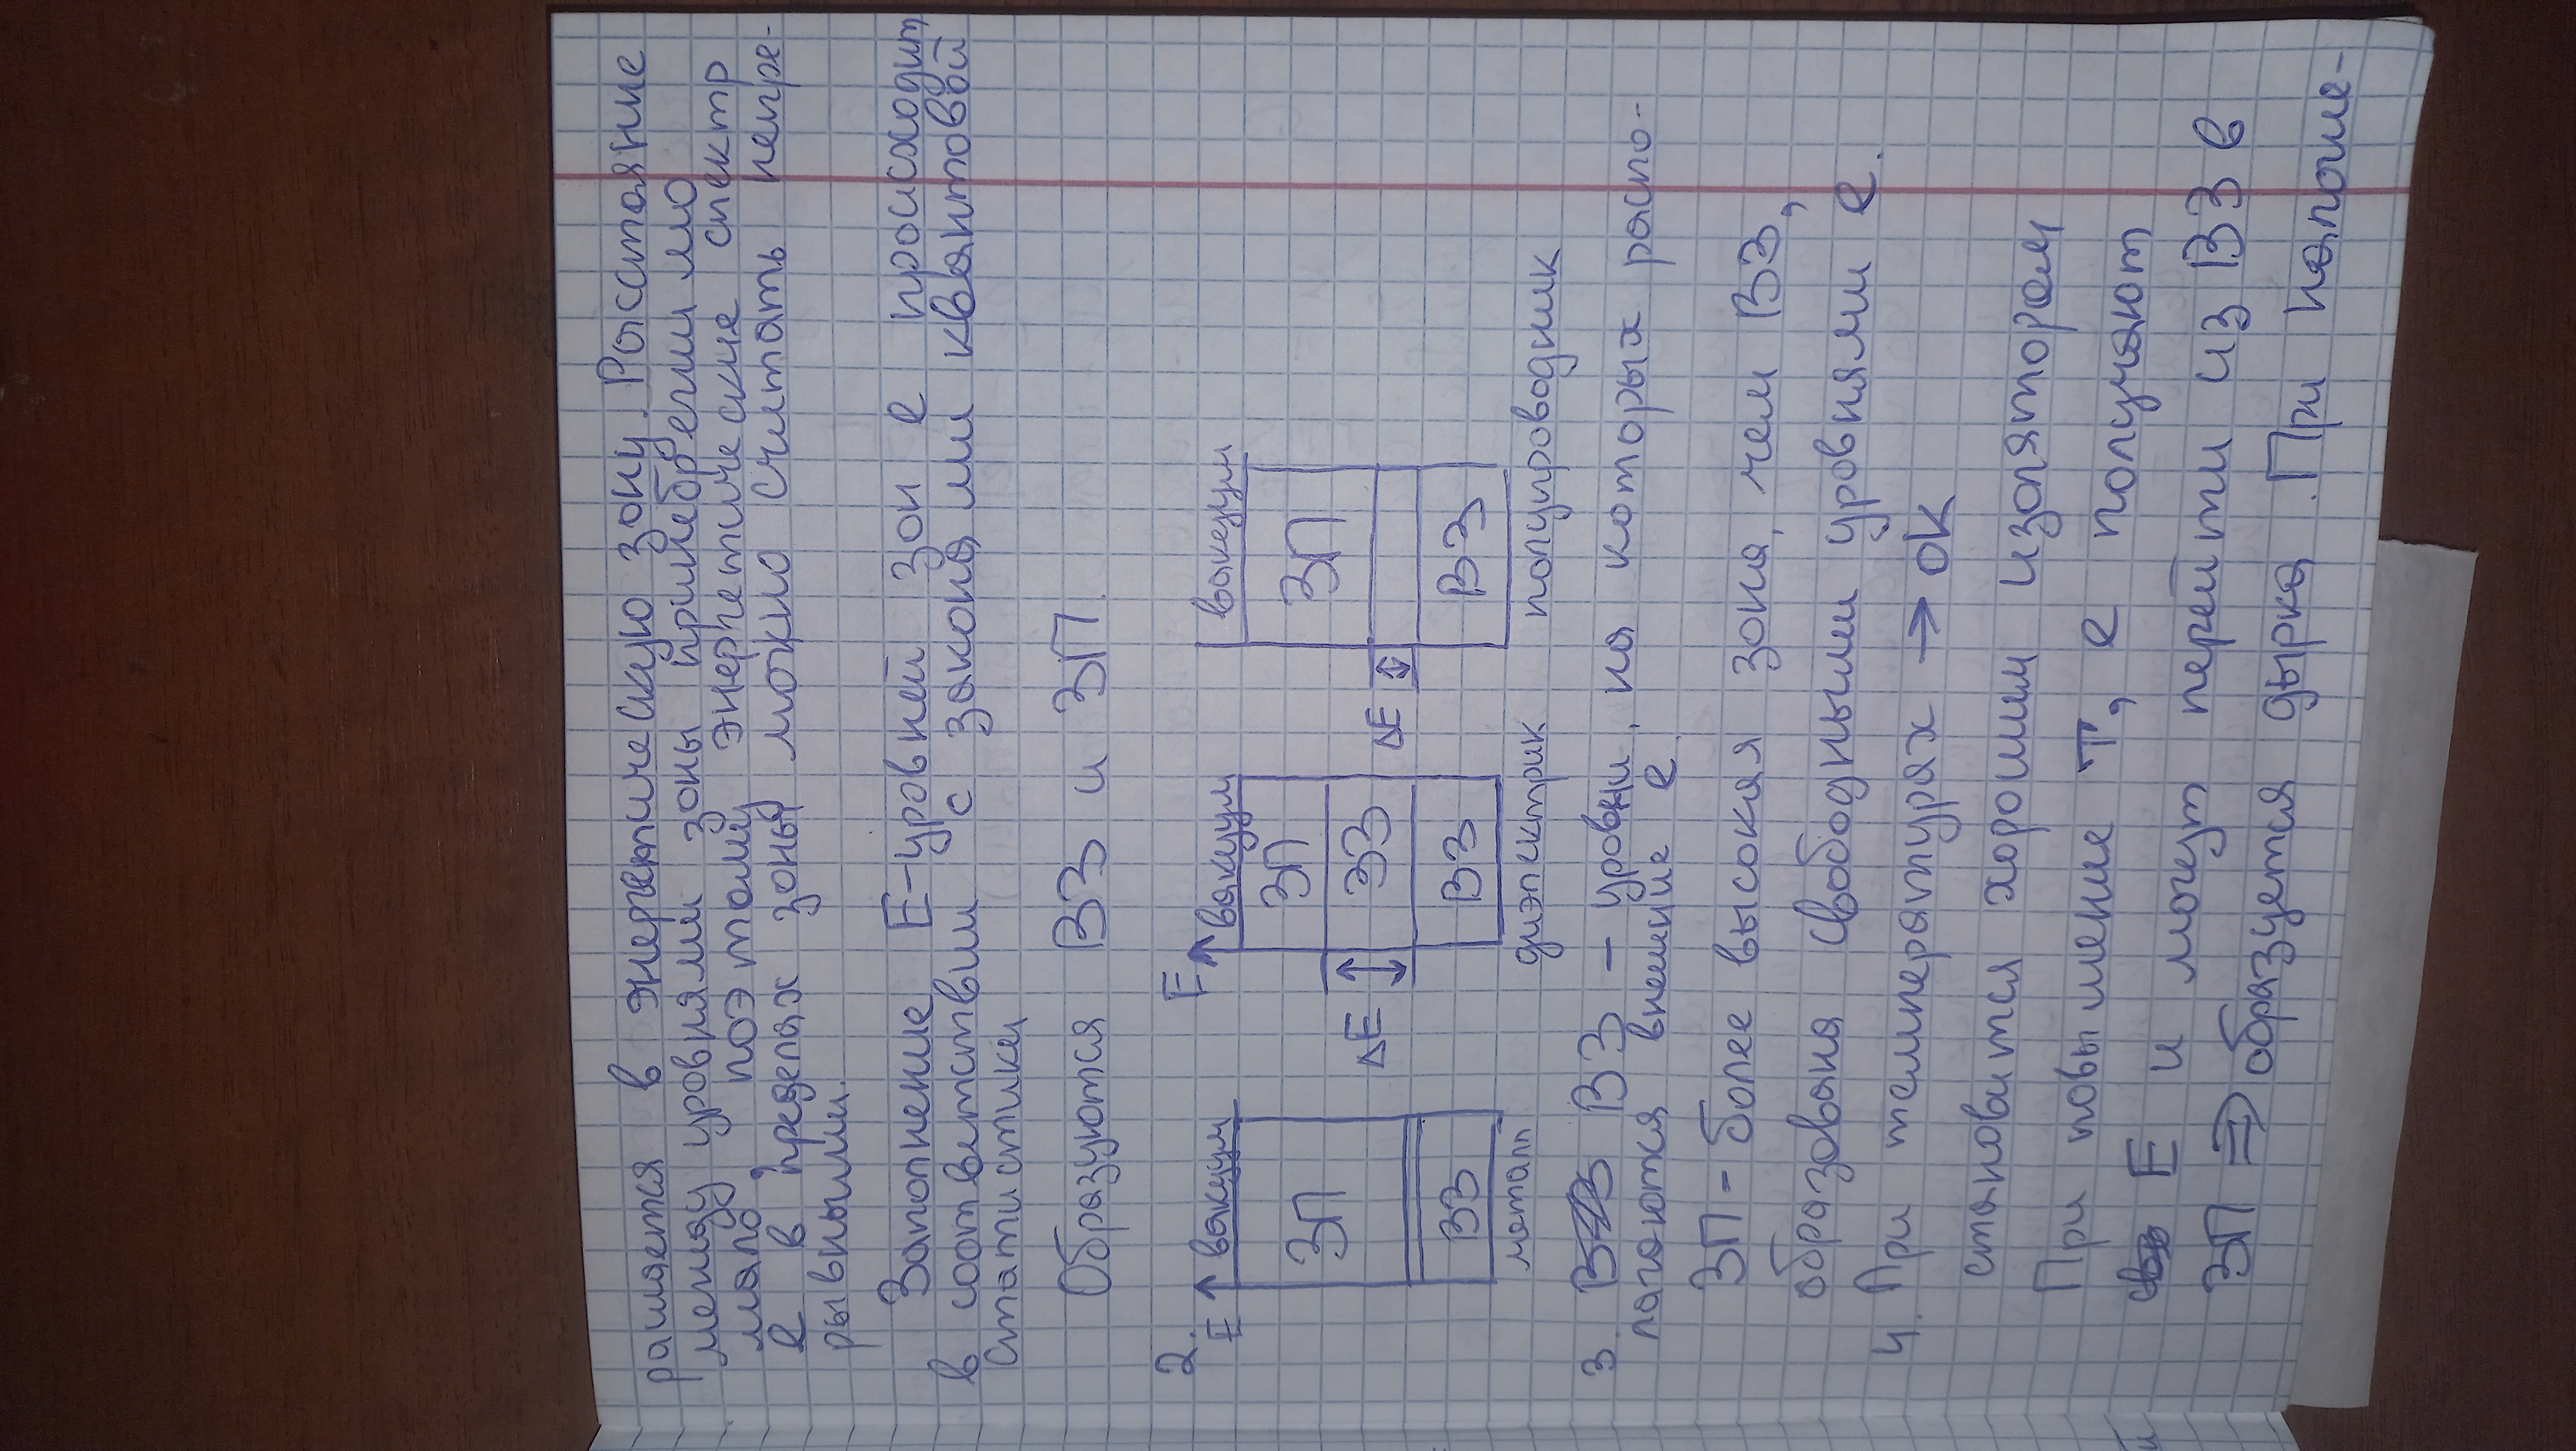 ращается в энергетическую зону. Расстояние
между уровнями зоны принебрегиимо
мало, поэтому энергетические спектр
е в пределах зоны можно считать непре-
рывными.
Заполнение Е-уровней зон е происходит
в соответствии с законами квантовой
статистики
Образуются ВЗ и ЗП.
2.
E вакуум
ЗП
ВЗ
металл
E вакуум
ЗП
ΔE ЗЗ
ВЗ
диэлектрик
вакуум
ЗП
ΔE
ВЗ
полупроводник
3. ВЗ – уровни, на которых распо-
лагаются внешние е.
ЗП – более высокая зона, чем ВЗ,
образована свободными уровнями е.
4. При температурах → 0К
становится хорошим изолятором
При повышение Т, е получают
Е и могут перейти из ВЗ в
ЗП ⇒ образуется дырка. При наложе-